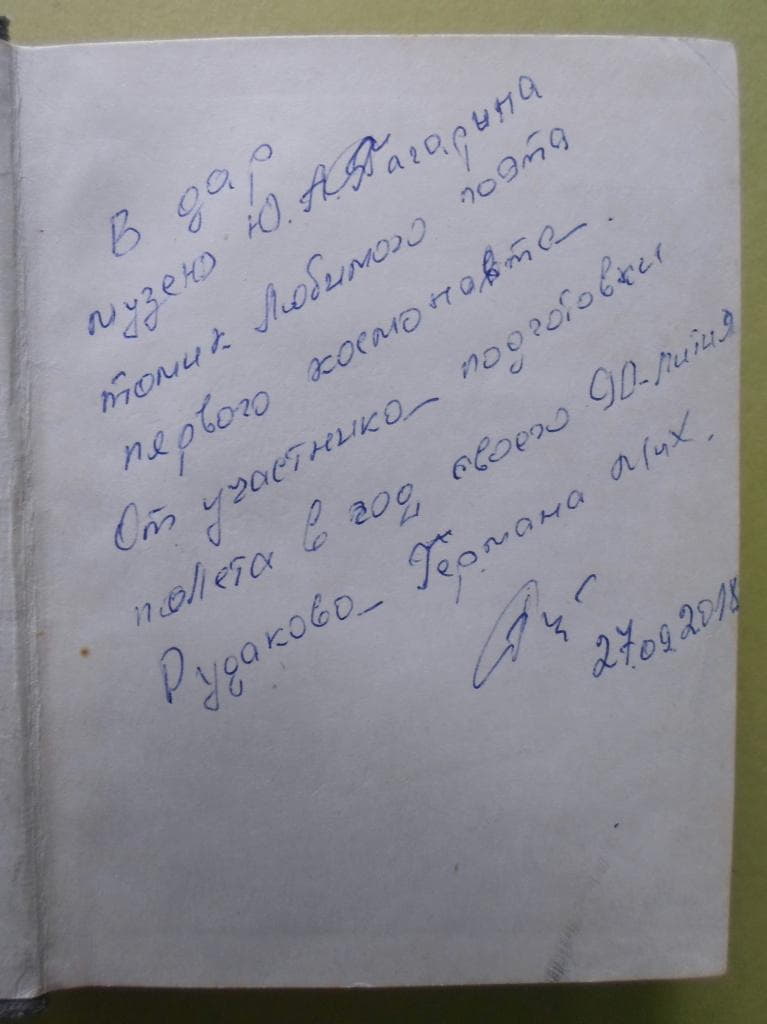 В дар
музею Ю.А.Гагарина
томик любимого поэта
первого космонавта.
От участника подготовки
полета в год своего 90-летия
Рудакова Германа Мих.
27.09.2018